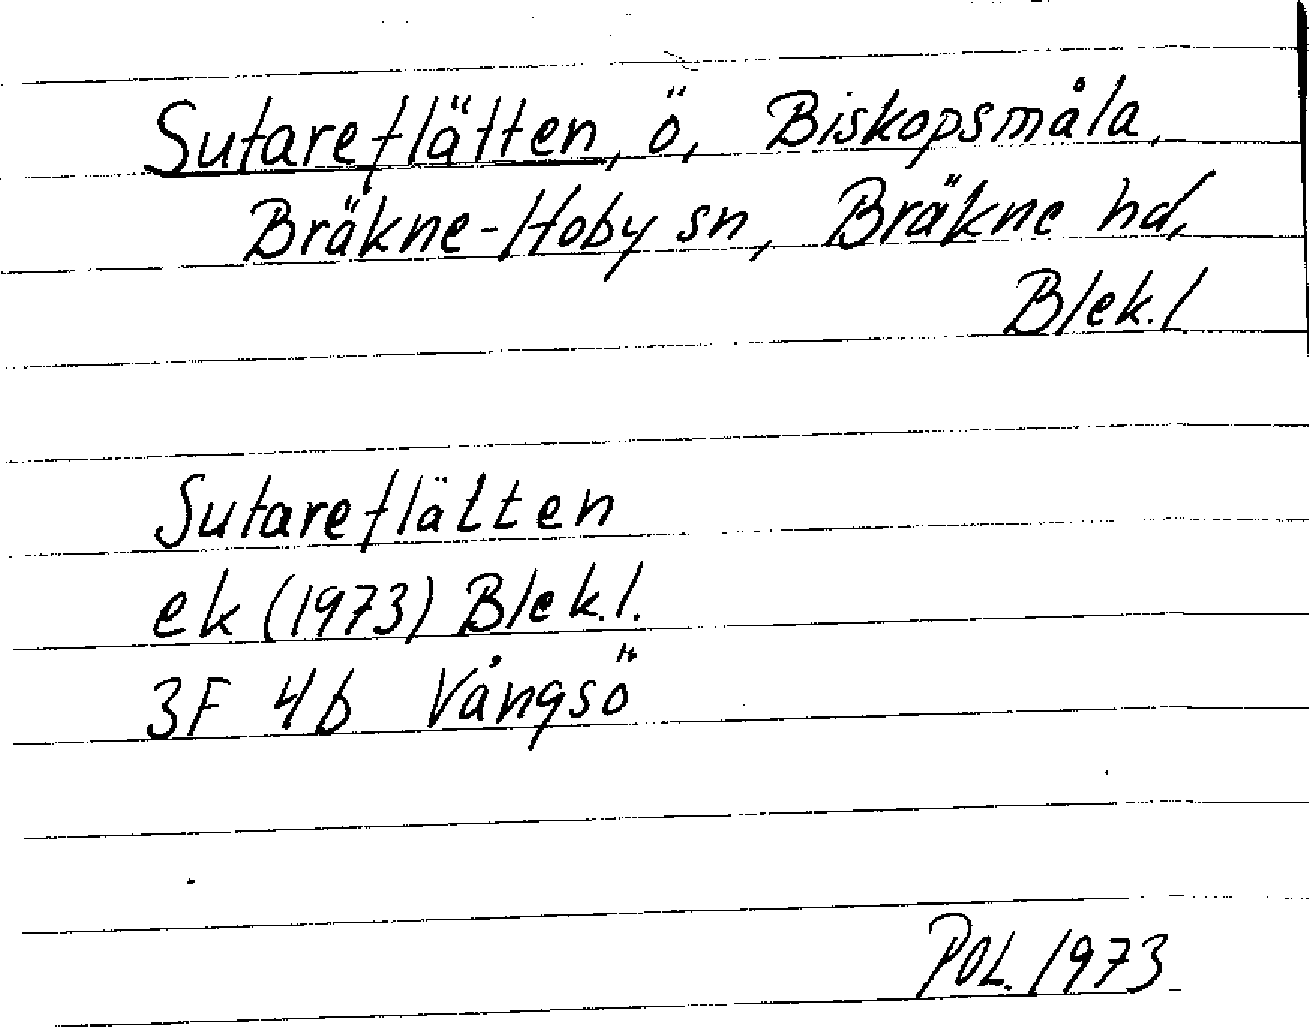 Sutareflätten, ö, Biskopsmåla,
Bräkne-Hoby sn, Bräkne hd,
Blek.l
Sutareflätten
ek (1973) Blek.l.
3F 4b Vångsö
POL. 1973